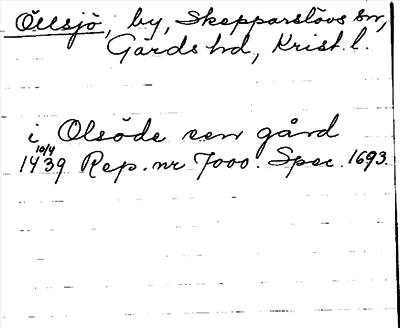 Öllsjö, by, Skepparslövs sn,
Gärds hd, Krist. l.
i Olsöde een gård
10/4
1439 Rep. nr 7000. Spec. 1693.